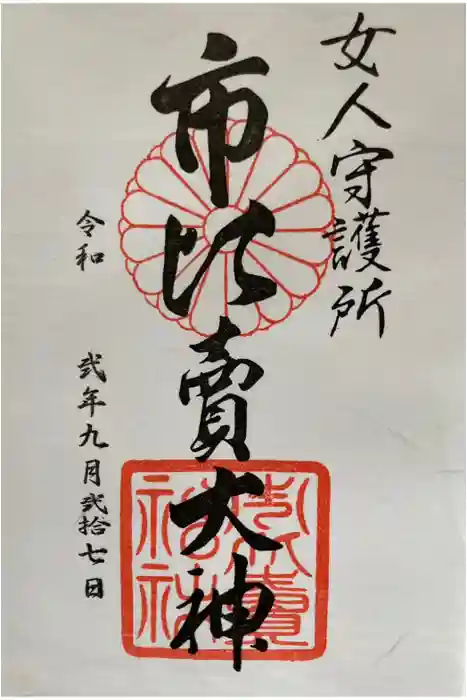 女人守護所
市比賣大神
令和 弐年九月弐拾七日